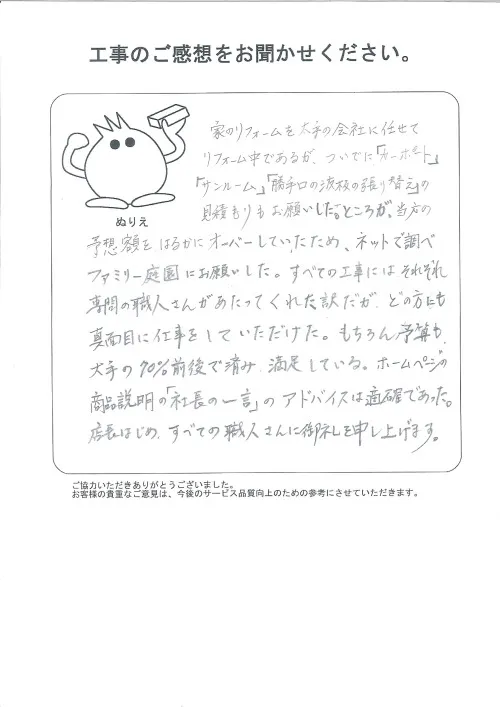 工事のご感想をお聞かせください。
家のリフォームを大手の会社に任せて
リフォーム中であるが、ついでに「カーポート」
「サンルーム」「勝手口の波板の張り替え」の
見積もりもお願いした。ところが、当方の
ぬりえ
予想額をはるかにオーバーしていたため、ネットで調べ
ファミリー庭園にお願いした。すべての工事にはそれぞれ
専門の職人さんがあたってくれた訳だが、どの方にも
真面目に仕事をしていただけた。もちろん予算も、
大手の70%前後で済み、満足している。ホームページの
商品説明の「社長の一言」のアドバイスは適確であった。
店長はじめ、すべての職人さんに御礼を申し上げます。
ご協力いただきありがとうございました。
お客様の貴重なご意見は、今後のサービス品質向上のための参考にさせていただきます。